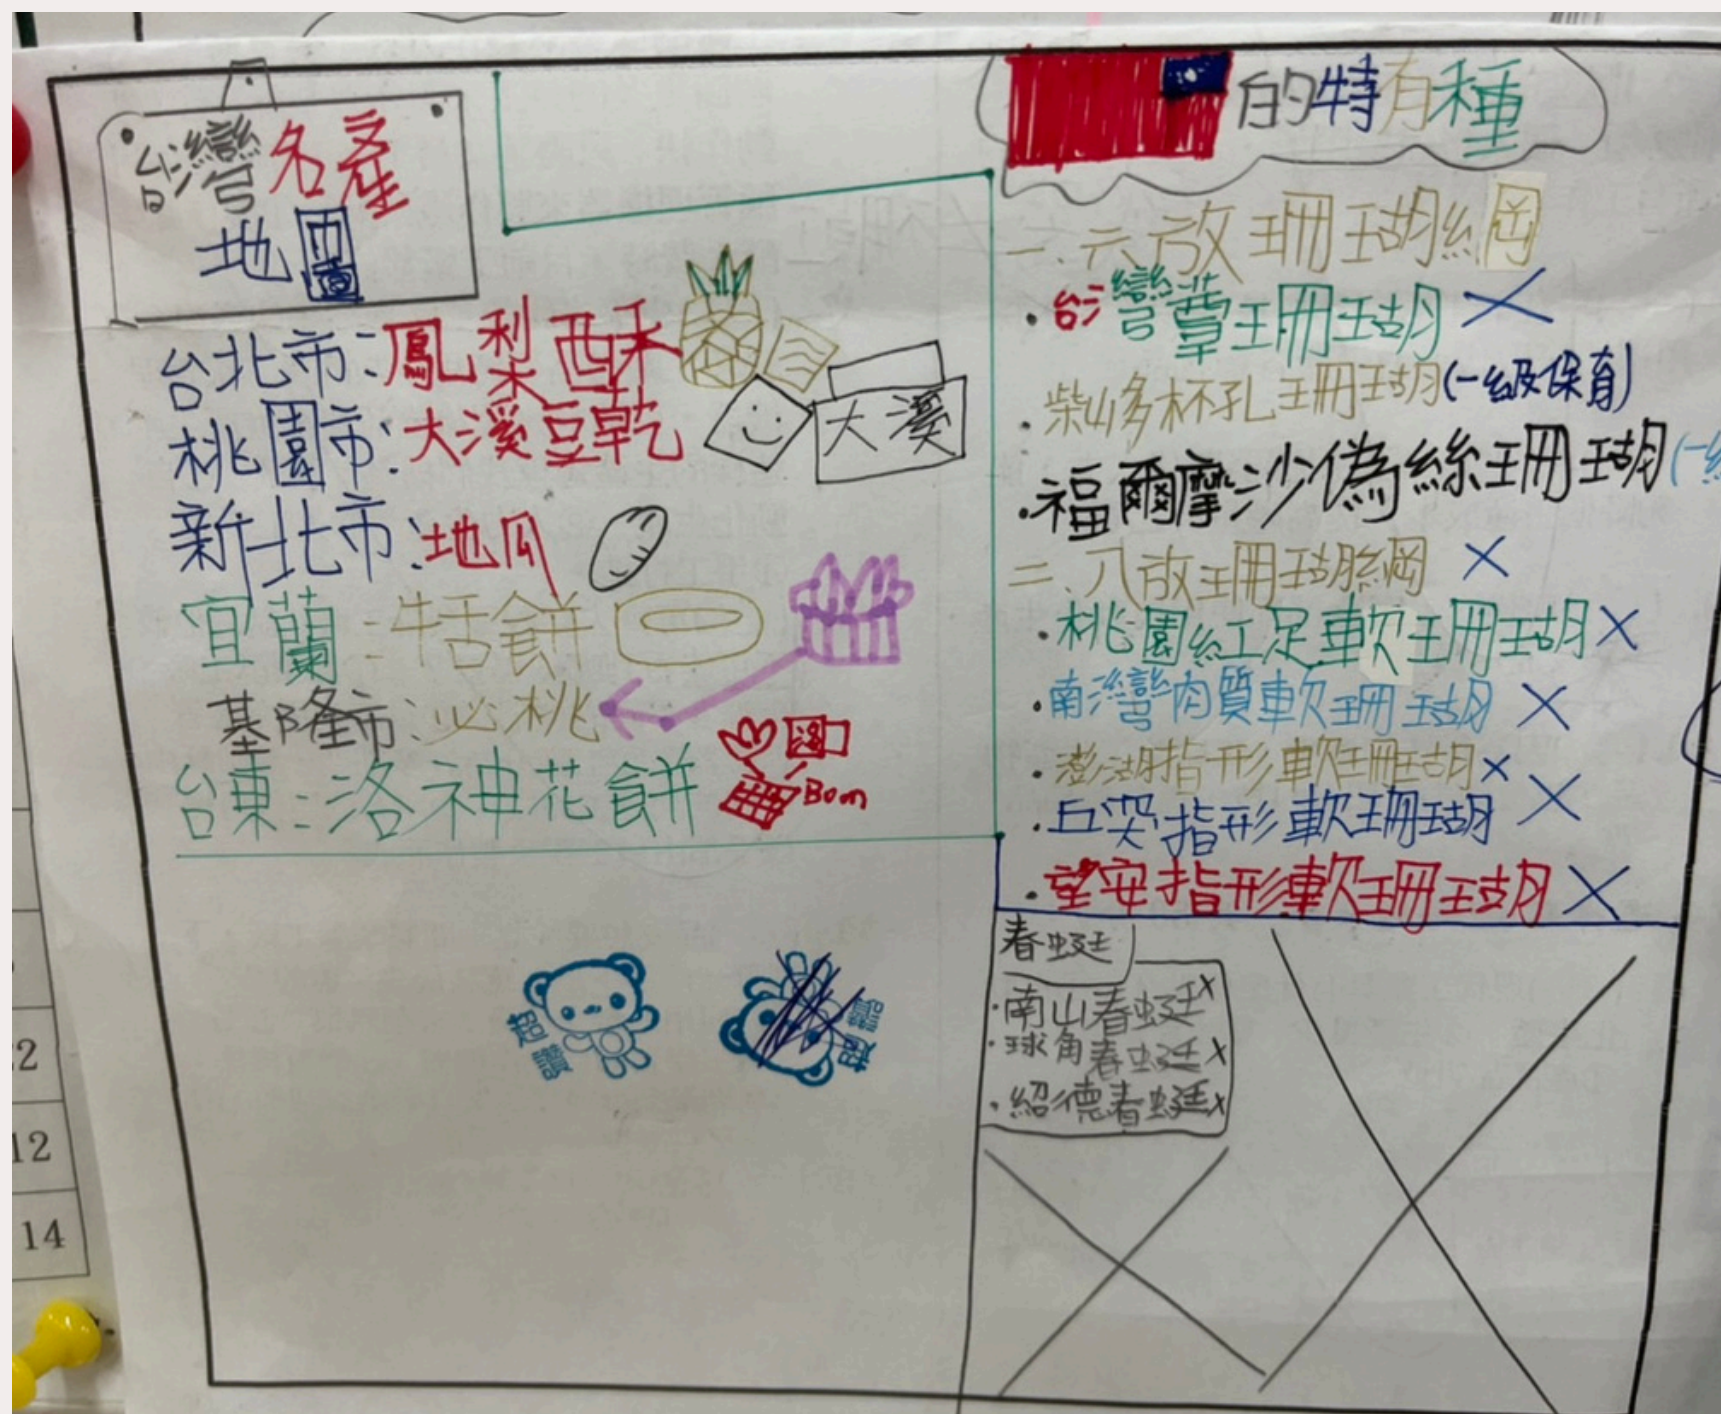 台灣名產
地圖
台北市:鳳梨酥
桃園市:大溪豆乾
大溪
新北市:地瓜
宜蘭:牛舌餅
基隆市:泌桃
台東:洛神花餅
Bom
超讚
超讚
的特有種
一.六放珊瑚綱
·台灣蕈珊瑚
·柴山多杯孔珊瑚(一級保育)
·福爾摩沙偽絲珊瑚(一級
二.八放珊瑚綱
·桃園紅足軟珊瑚
·南灣肉質軟珊瑚
·澎湖指形軟珊瑚
·丘突指形軟珊瑚
·望安指形軟珊瑚
春蜓
·南山春蜓
·球角春蜓
·紹德春蜓
22
12
14